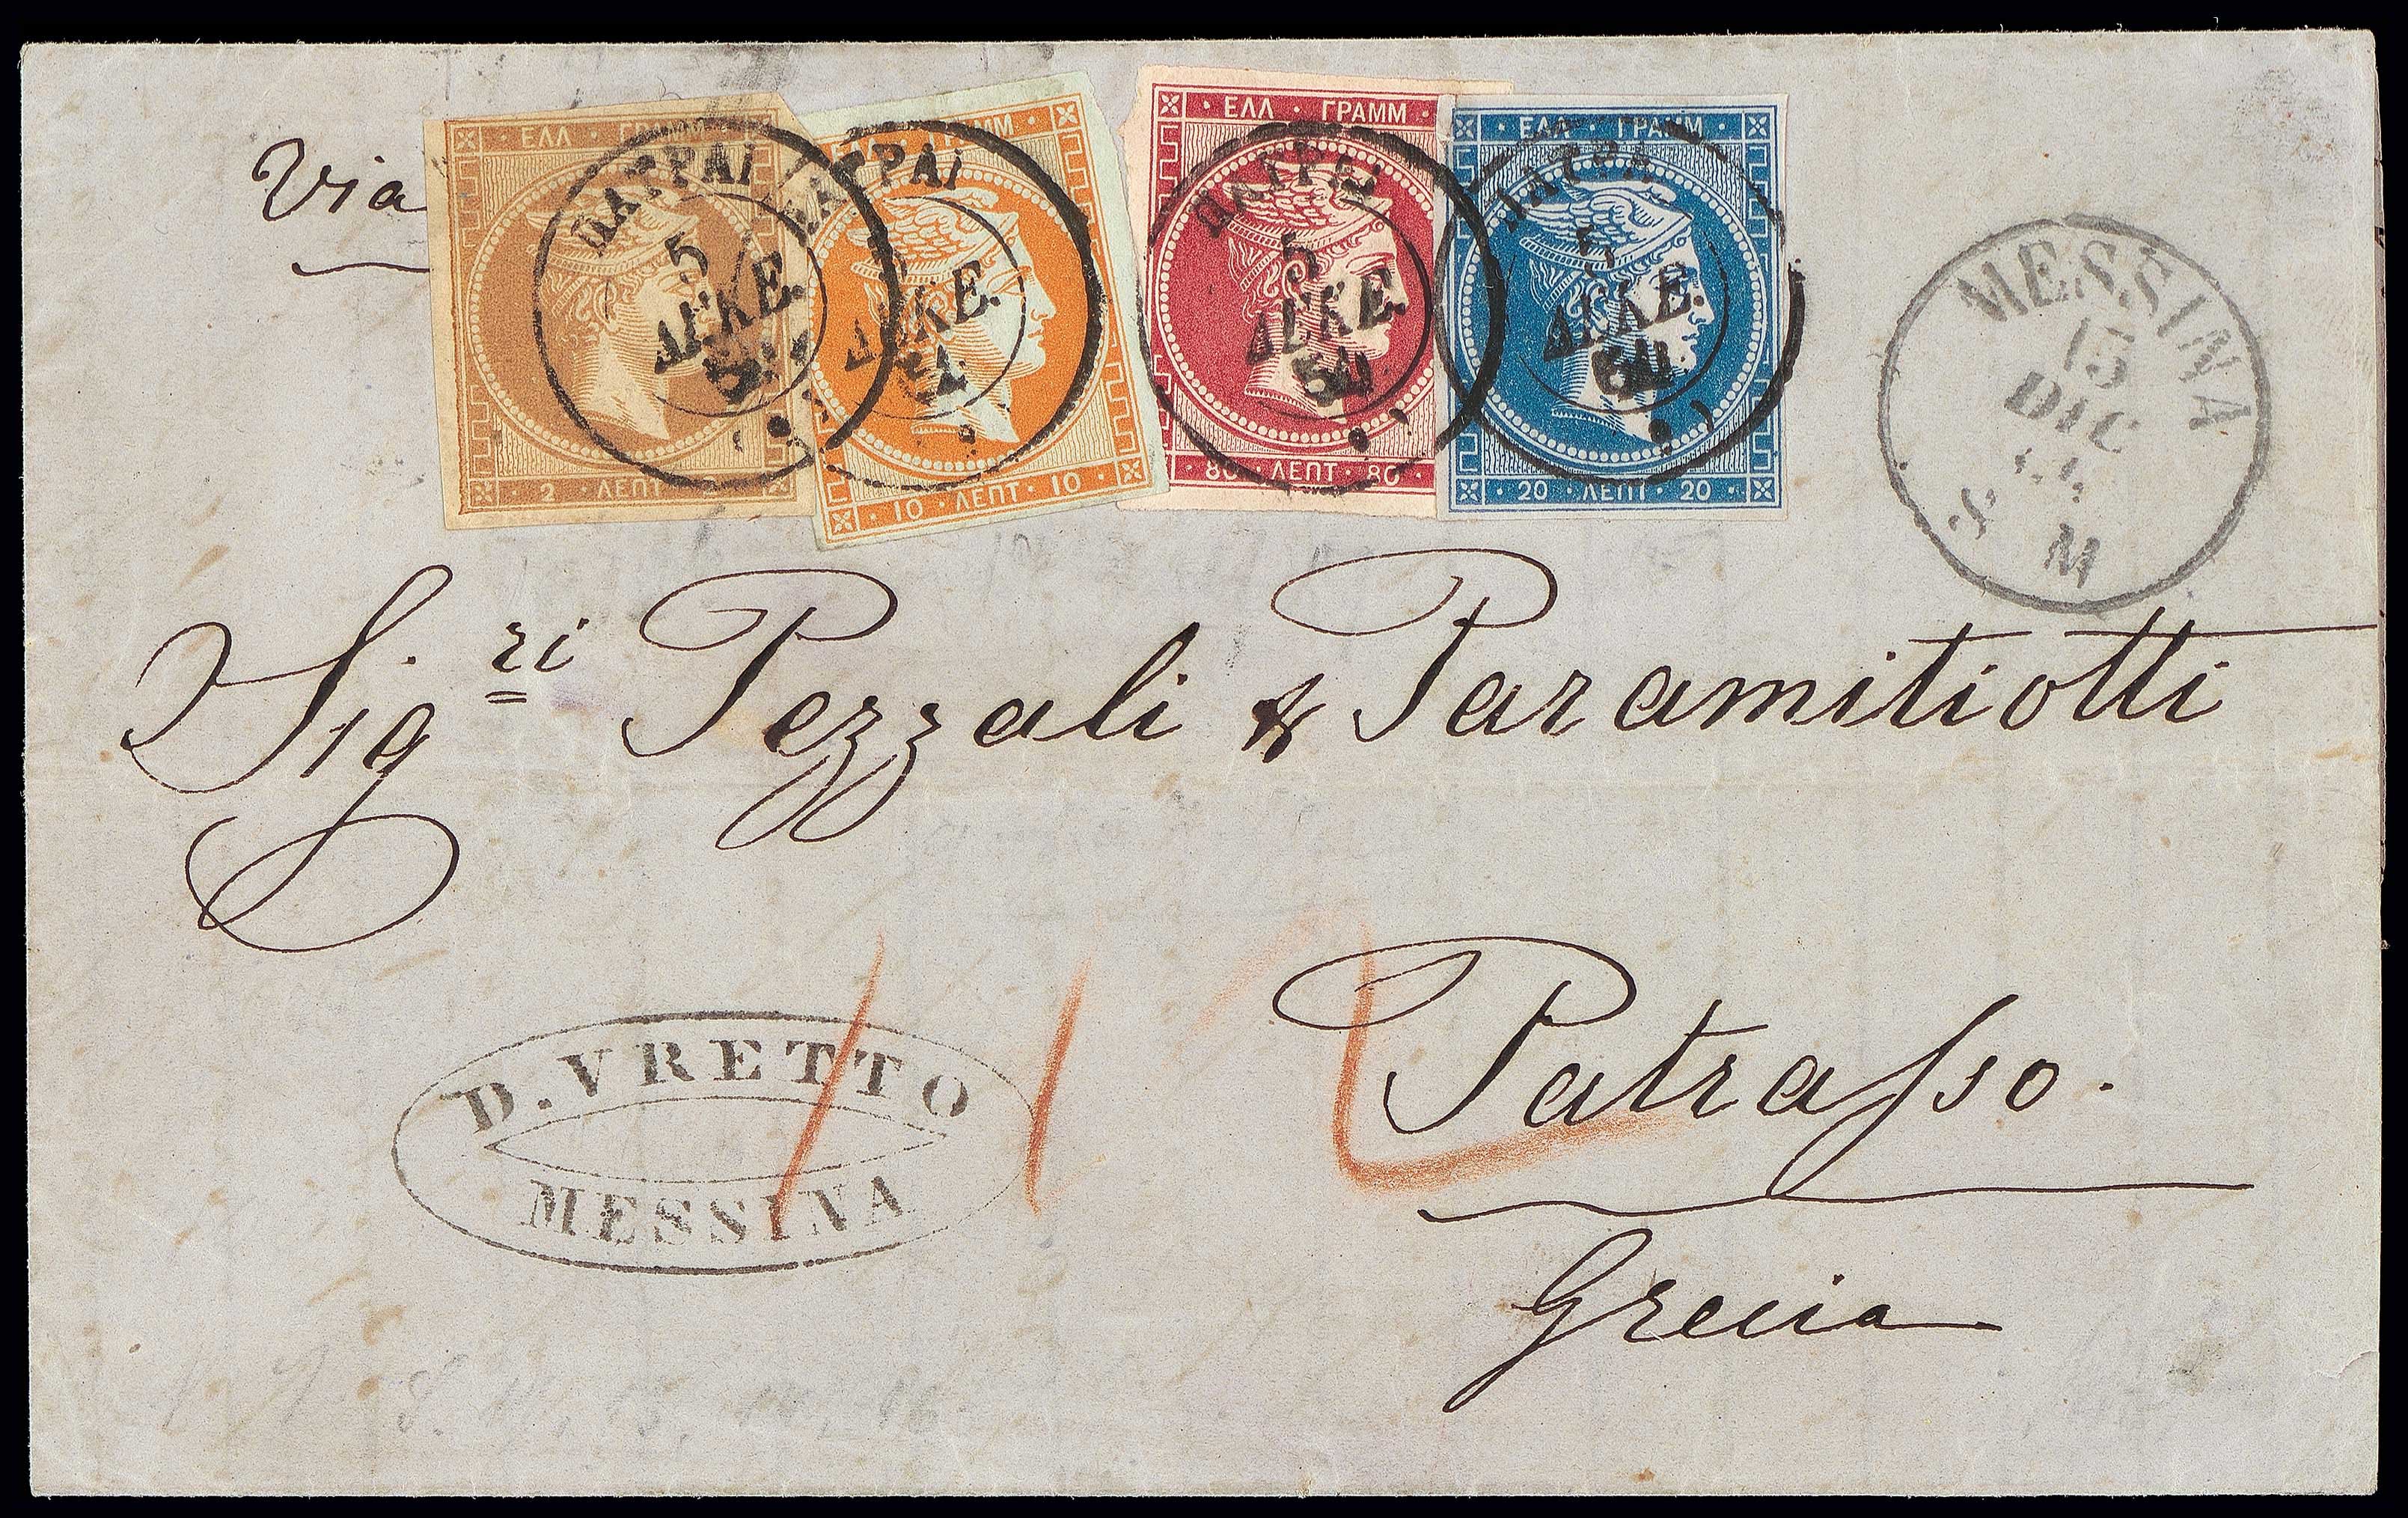 Via
ΕΛΛ · ΓΡΑΜΜ
2 · ΛΕΠΤ
ΠΑΤΡΑΙ
5
ΔΕΚΕ.
ΕΛΛ · ΓΡΑΜΜ
10 · ΛΕΠΤ · 10
ΠΑΤΡΑΙ
ΔΕΚΕ.
ΕΛΛ · ΓΡΑΜΜ
80 · ΛΕΠΤ · 80
ΠΑΤΡΑΙ
5
ΔΕΚΕ.
64
ΕΛΛ · ΓΡΑΜΜ
20 · ΛΕΠΤ · 20
ΠΑΤΡΑΙ
5
ΔΕΚΕ.
64
MESSINA
15
DIC
S M
Sigri Pezzali & Paramitiotti
Patrasso.
Grecia
D. VRETTO
MESSINA